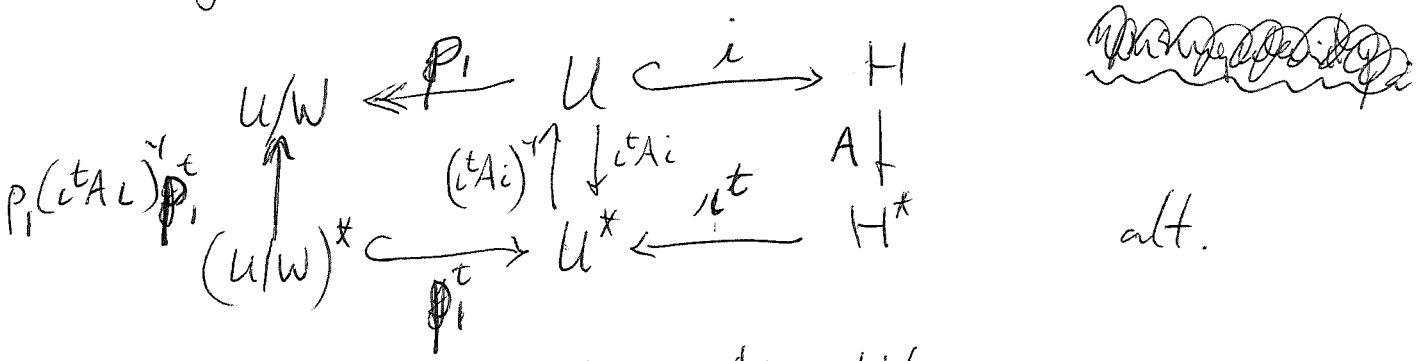 U/W p₁ U i H
p₁(iᵗAi)⁻¹p₁ᵗ (iᵗAi)⁻¹ iᵗAi A
(U/W)* p₁ᵗ U* iᵗ H* alt.